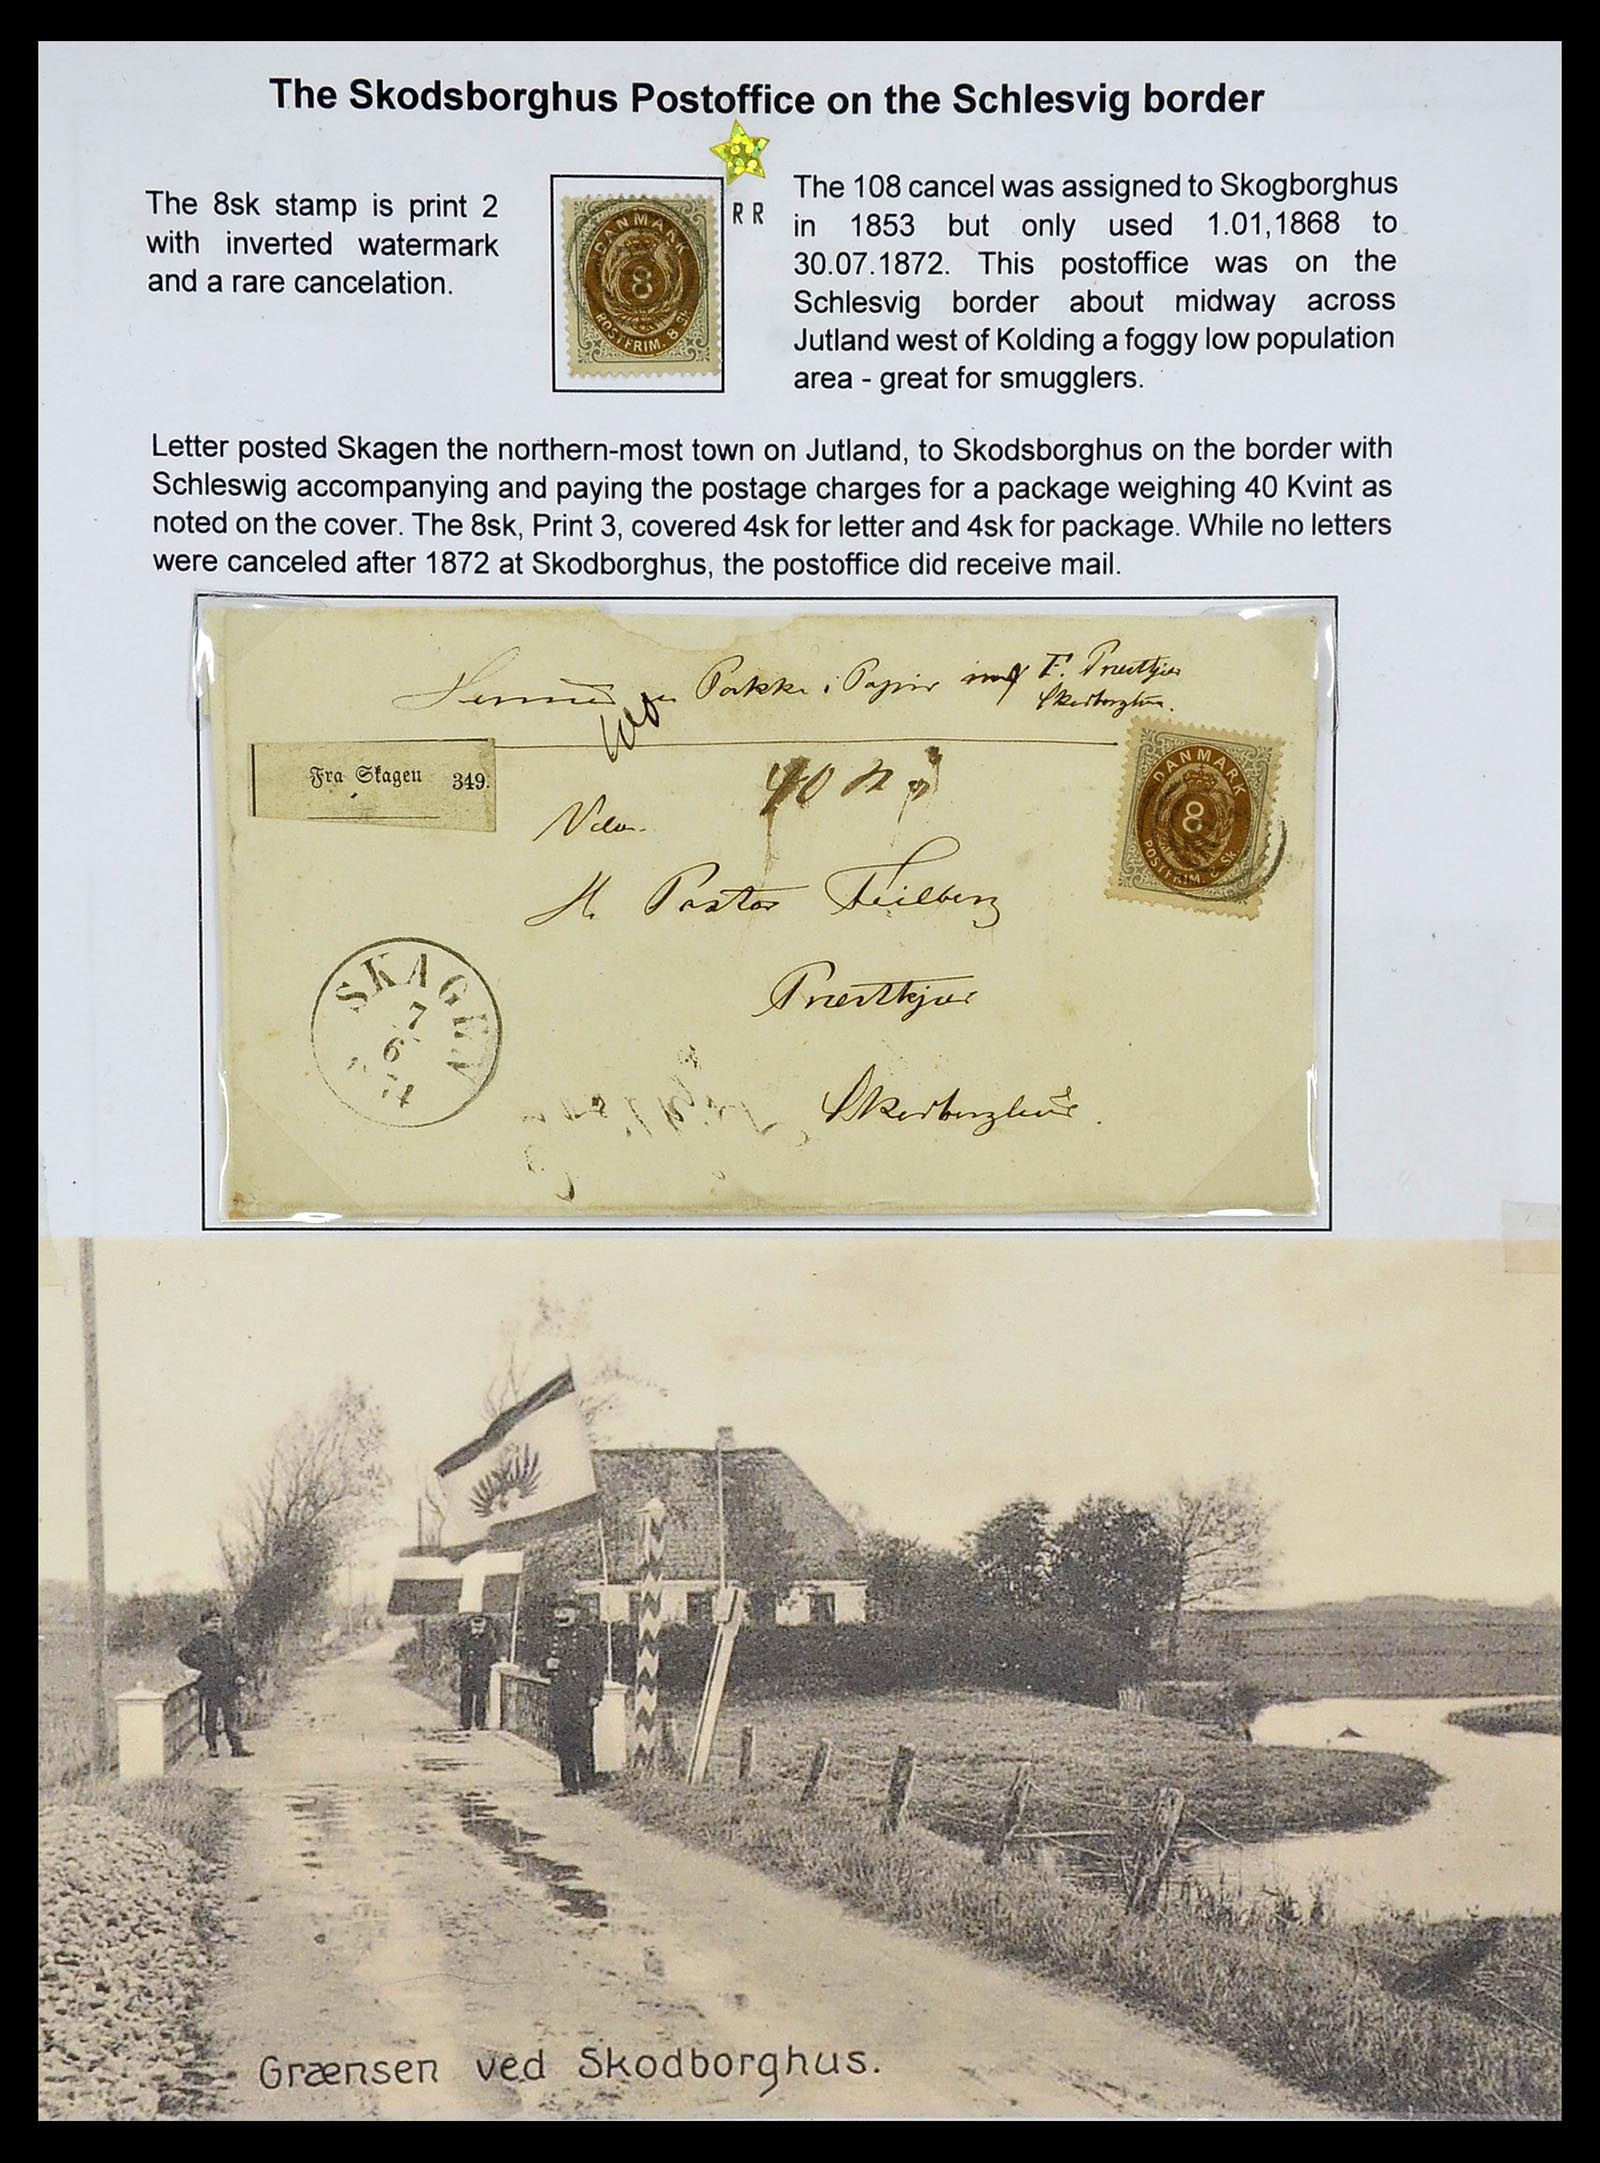 The Skodsborghus Postoffice on the Schlesvig border
The 8sk stamp is print 2
with inverted watermark
and a rare cancelation.
DANMARK
8
POSTFRIM. 8 Sk.
RR
The 108 cancel was assigned to Skogborghus
in 1853 but only used 1.01,1868 to
30.07.1872. This postoffice was on the
Schlesvig border about midway across
Jutland west of Kolding a foggy low population
area - great for smugglers.
Letter posted Skagen the northern-most town on Jutland, to Skodsborghus on the border with
Schleswig accompanying and paying the postage charges for a package weighing 40 Kvint as
noted on the cover. The 8sk, Print 3, covered 4sk for letter and 4sk for package. While no letters
were canceled after 1872 at Skodborghus, the postoffice did receive mail.
Pakke i Papir F. Præstkjær
Fra Skagen 349.
40
DANMARK
8
POSTFRIM. 8 Sk.
H. Pastor Feilberg
Præstkjær
SKAGEN
7
6
Graensen ved Skodborghus.